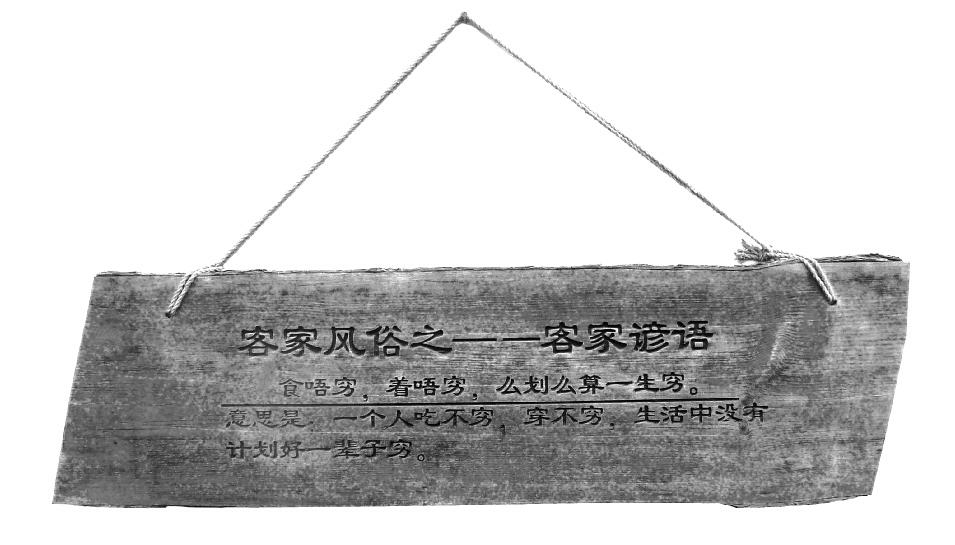 客家风俗之——客家谚语
食唔穷，着唔穷，么划么算一生穷。
意思是，一个人吃不穷，穿不穷，生活中没有
计划好一辈子穷。